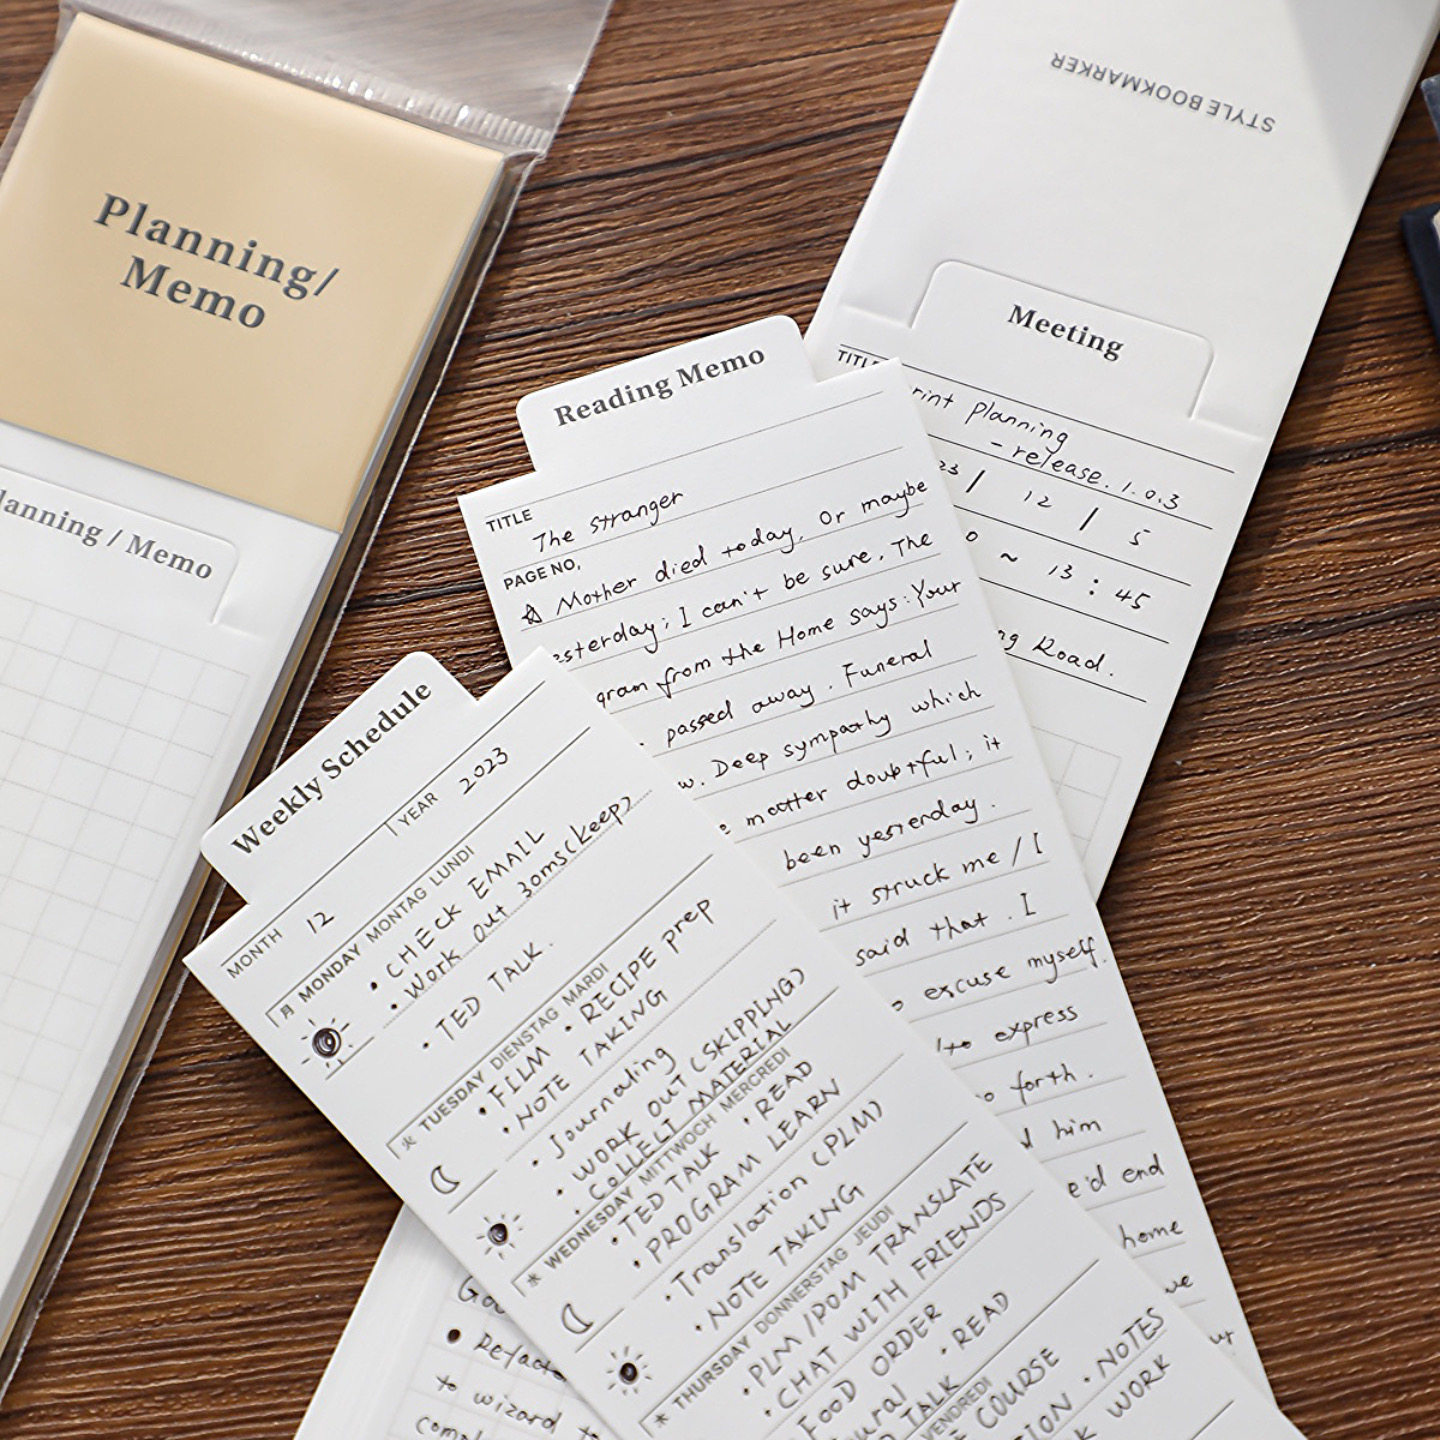 Planning/
Memo
Planning / Memo
STYLE BOOKMARKER
Meeting
TITLE
print Planning
- release. 1. 0. 3
23 / 12 / 5
0 ~ 13 : 45
Road.
Reading Memo
TITLE
The stranger
PAGE NO.
☆ Mother died today. Or maybe
esterday; I can't be sure. The
gram from the Home says: Your
passed away. Funeral
w. Deep sympathy which
matter doubtful; it
been yesterday.
it struck me / I
said that. I
excuse myself.
to express
forth.
him
e'd end
home
Weekly Schedule
MONTH 12 YEAR 2023
月 MONDAY MONTAG LUNDI
• CHECK EMAIL
• Work out 30ms(keep)
• TED TALK.
火 TUESDAY DIENSTAG MARDI
• FILM • RECIPE prep
• NOTE TAKING
• Journaling
• WORK OUT (SKIPPING)
• COLLECT MATERIAL
水 WEDNESDAY MITTWOCH MERCREDI
• TED TALK • READ
• PROGRAM LEARN
• Translation (PLM)
• NOTE TAKING
木 THURSDAY DONNERSTAG JEUDI
• PLM / POM TRANSLATE
• CHAT WITH FRIENDS
FOOD ORDER
• READ
TALK
VENDREDI
COURSE
• NOTES
WORK
• Refact
to wizard to